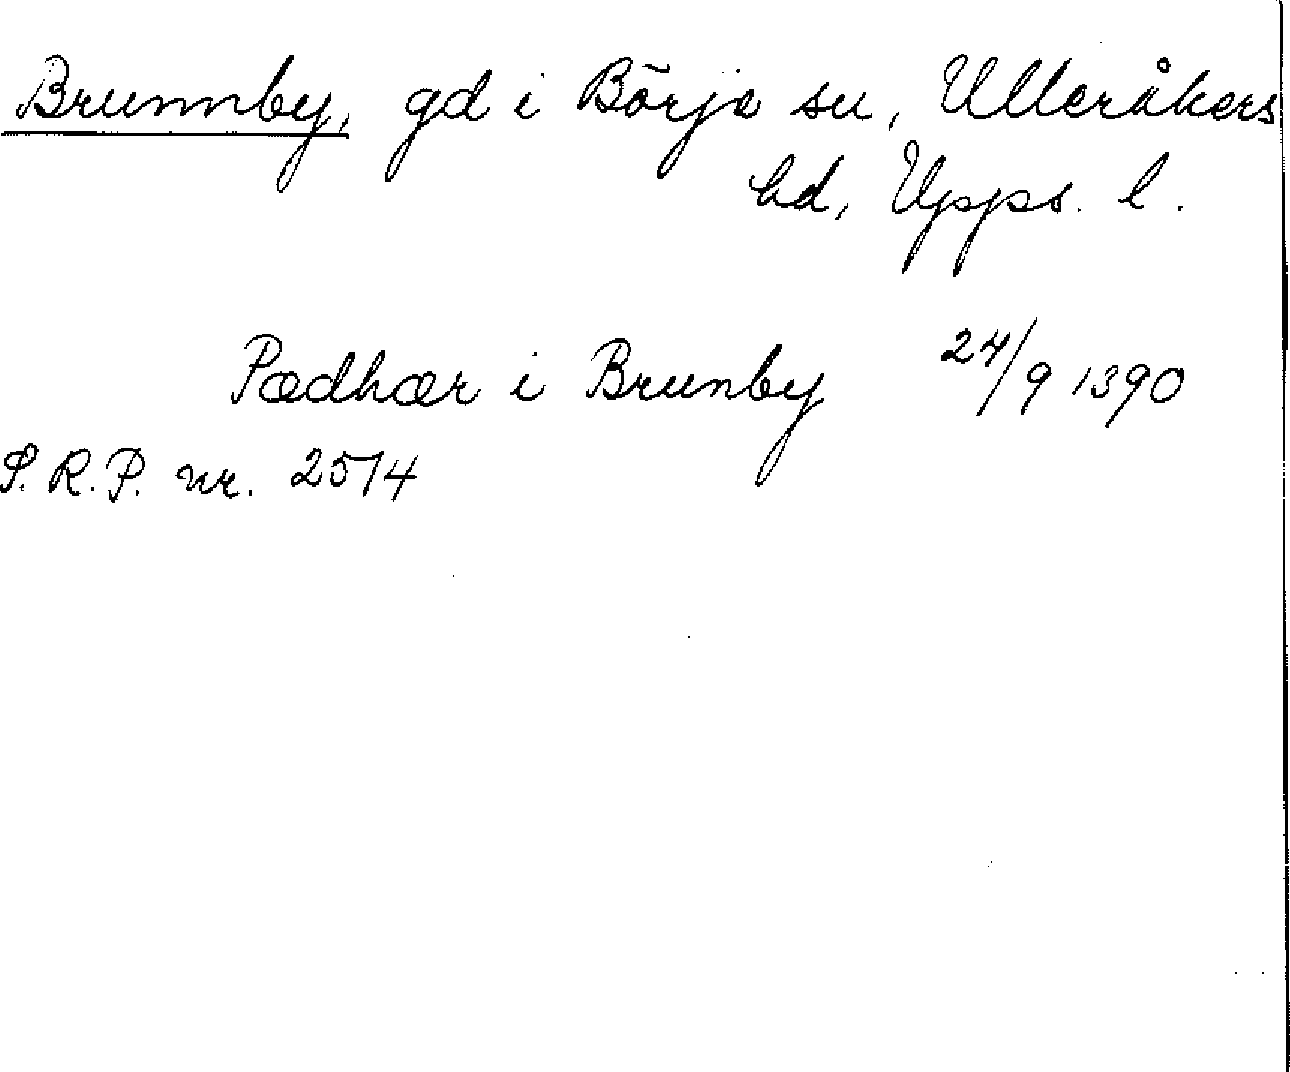 Brunnby, gd i Börje sn, Ulleråkers
hd, Upps. l.
Pædhær i Brunby 24/9 1390
S.R.P. nr. 2514